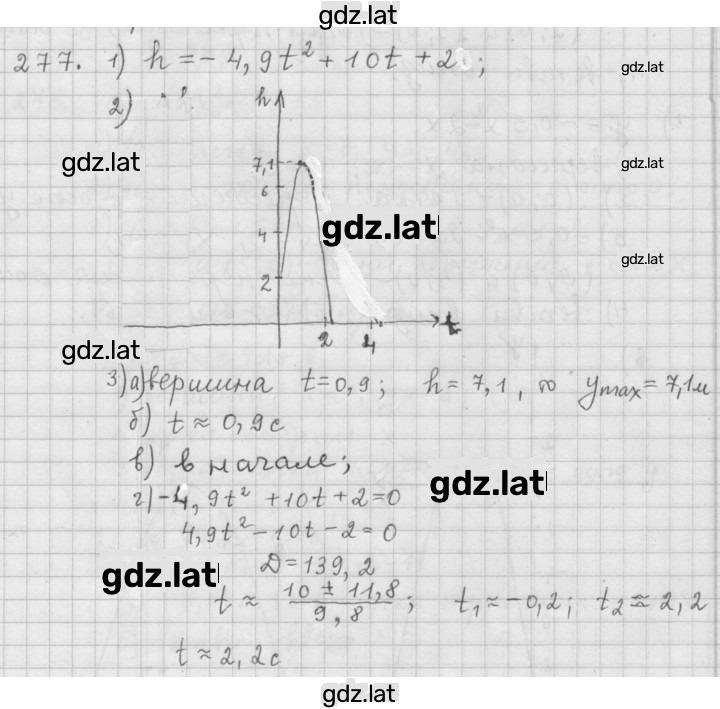 gdz.lat
277. 1) h = - 4,9t² + 10t + 2;
gdz.lat
2)
h
gdz.lat
gdz.lat
7,1
6
gdz.lat
4
gdz.lat
2
t
2 4
gdz.lat
3) а) вершина t = 0,9; h = 7,1, то ymax = 7,1м
б) t ≈ 0,9с
в) в начале;
gdz.lat
г) -4,9t² + 10t + 2 = 0
4,9t² - 10t - 2 = 0
gdz.lat
D = 139,2
t ≈ (10 ± 11,8)/9,8; t₁ ≈ -0,2; t₂ ≈ 2,2
t ≈ 2,2с
gdz.lat